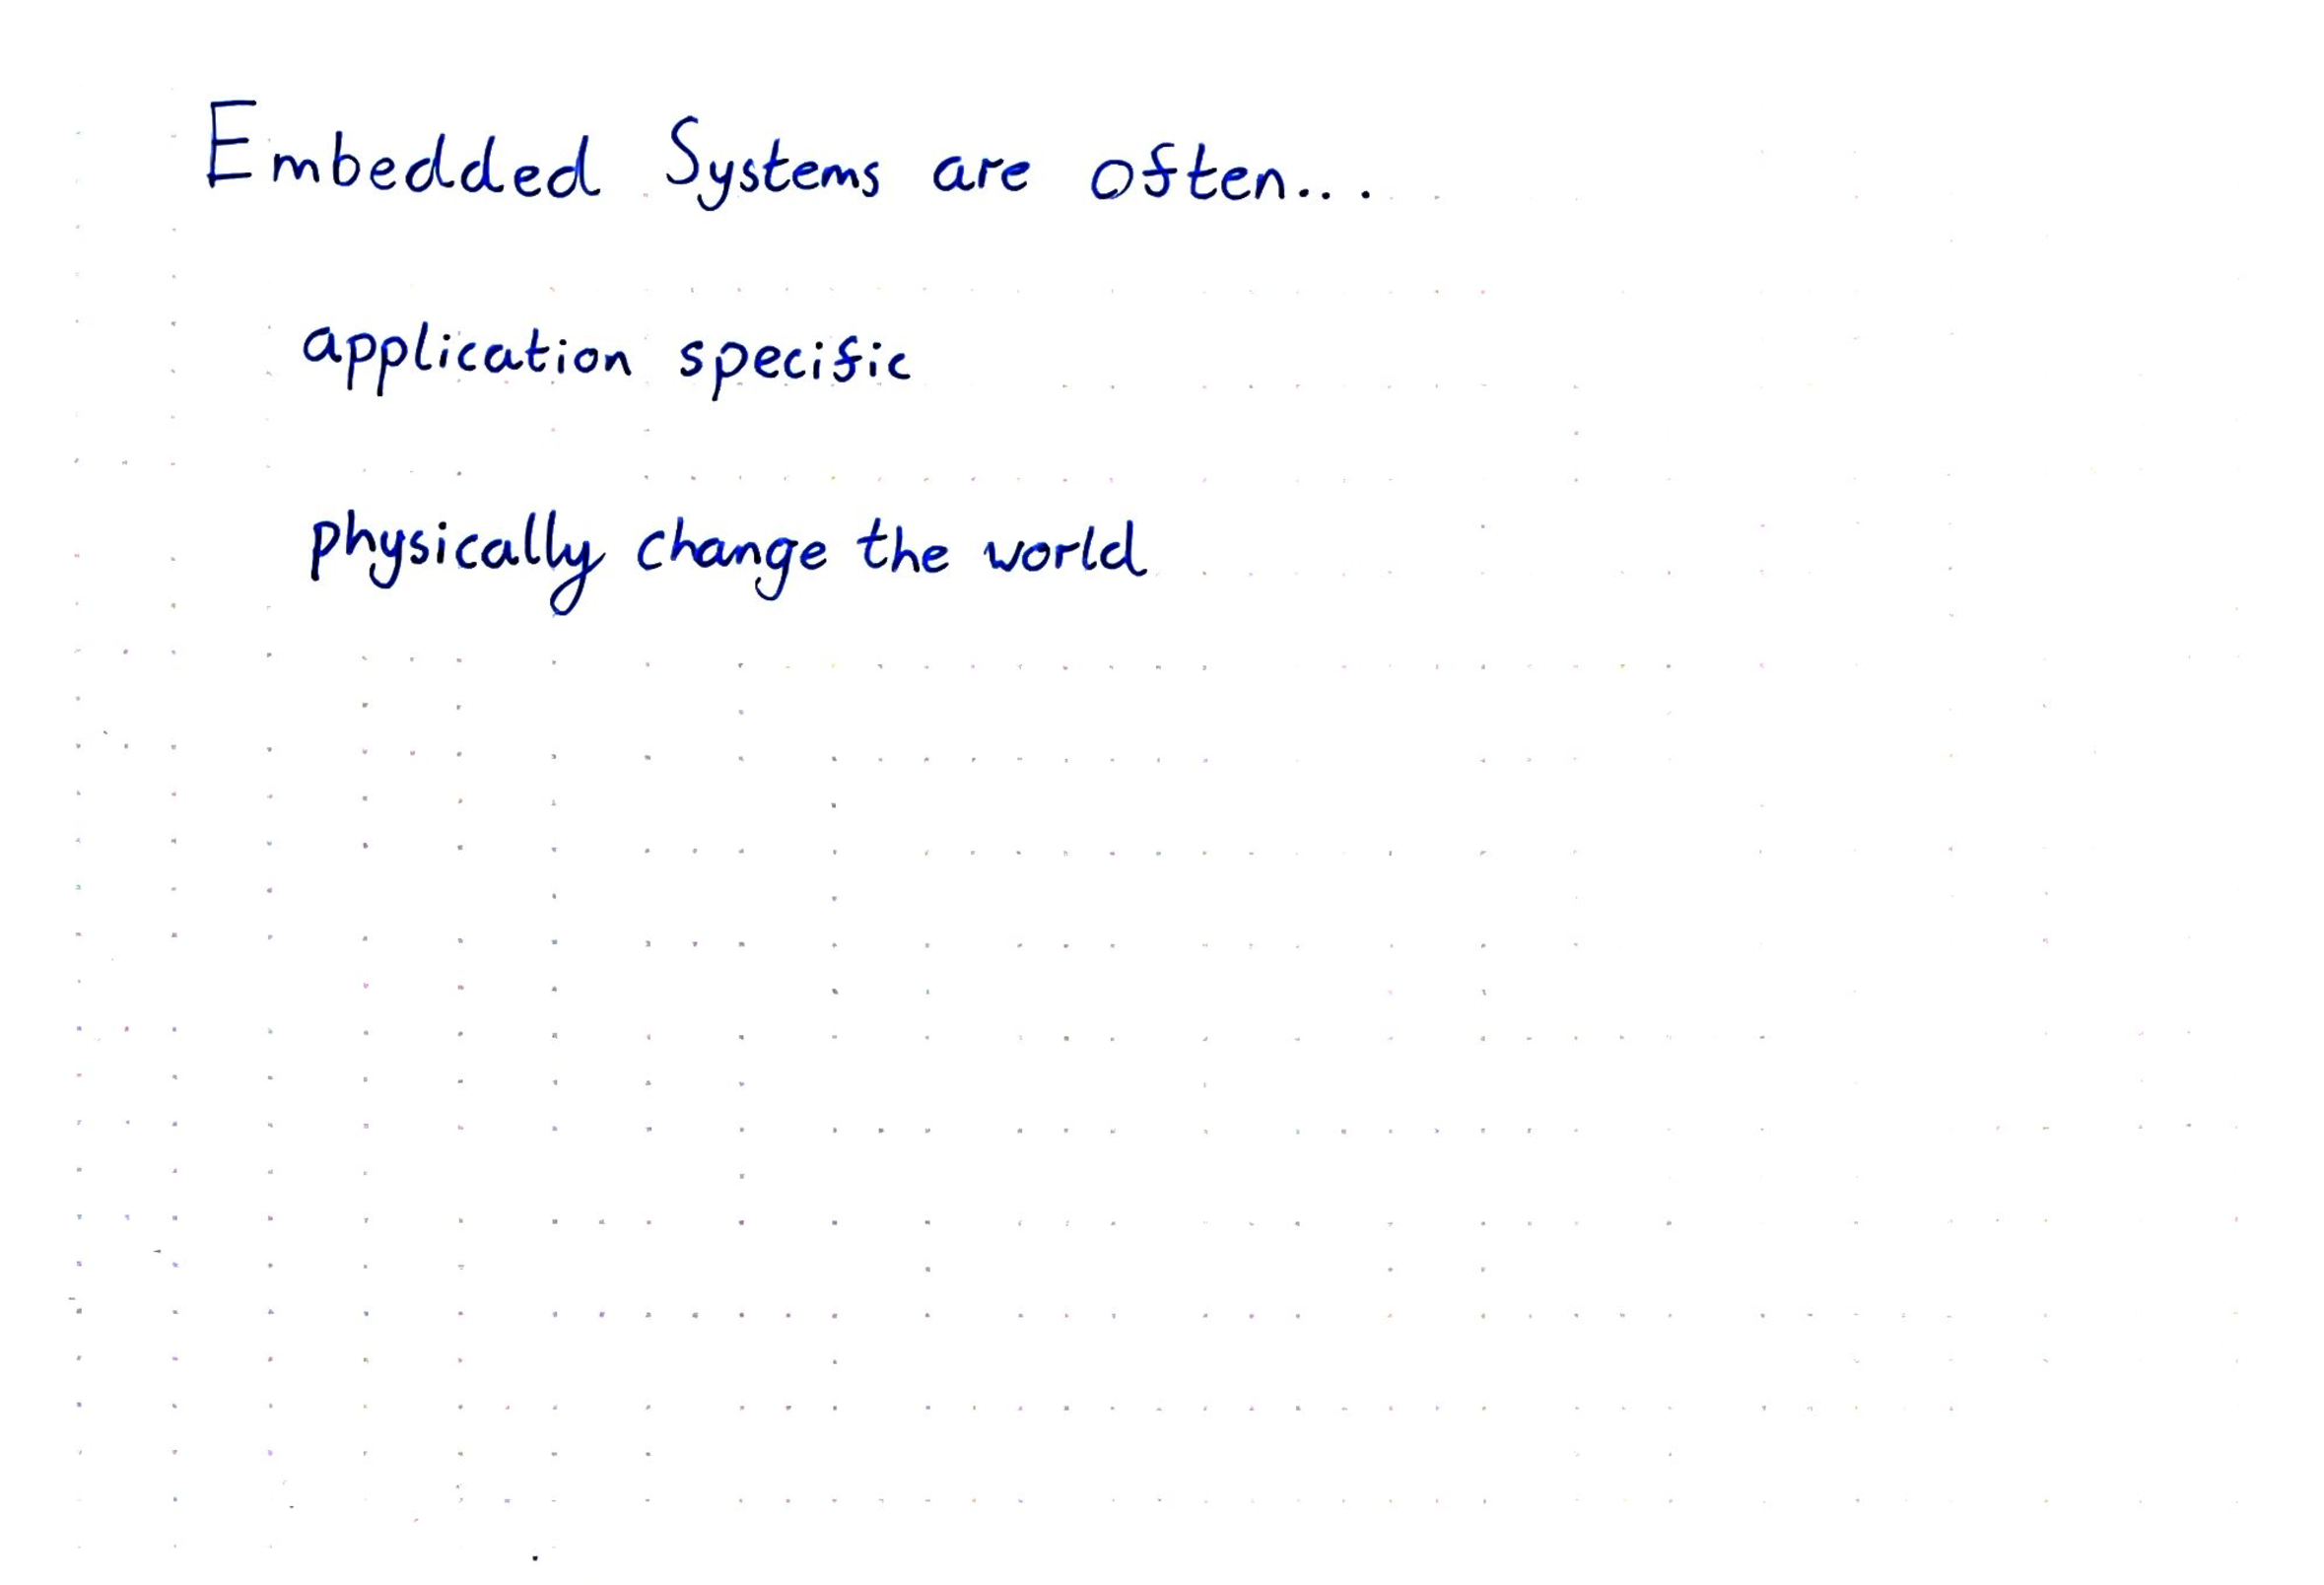 Embedded Systems are often...
application specific
physically change the world